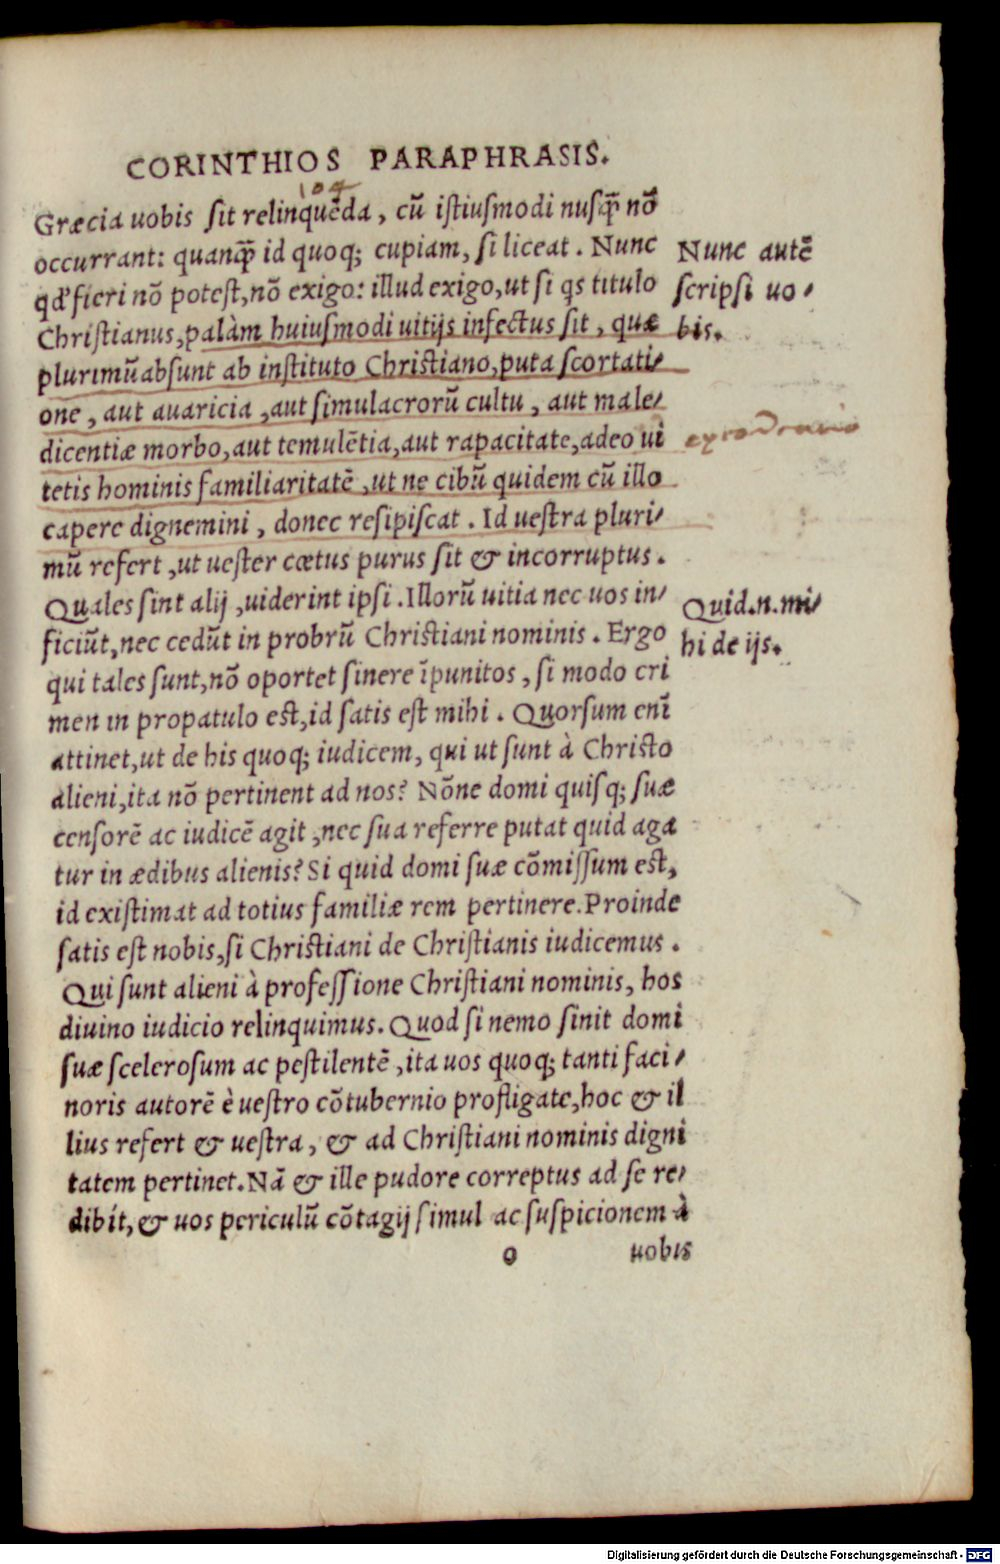 CORINTHIOS PARAPHRASIS.
104
Græcia uobis sit relinquẽda, cũ istiusmodi nusq̃ nõ
occurrant: quanq̃ id quoq; cupiam, si liceat. Nunc
qd̃ fieri nõ potest, nõ exigo: illud exigo, ut si qs titulo
Christianus, palàm huiusmodi uitijs infectus sit, quæ
plurimũ absunt ab instituto Christiano, puta scortati-
one, aut auaricia, aut simulacrorũ cultu, aut male-
dicentiæ morbo, aut temulẽtia, aut rapacitate, adeo ui
tetis hominis familiaritatẽ, ut ne cibũ quidem cũ illo
capere dignemini, donec resipiscat. Id uestra pluri-
mũ refert, ut uester cœtus purus sit & incorruptus.
Quales sint alij, uiderint ipsi. Illorũ uitia nec uos in-
ficiũt, nec cedũt in probrũ Christiani nominis. Ergo
qui tales sunt, nõ oportet sinere ĩpunitos, si modo cri
men in propatulo est, id satis est mihi. Quorsum enĩ
attinet, ut de his quoq; iudicem, qui ut sunt à Christo
alieni, ita nõ pertinent ad nos? Nõne domi quisq; suæ
censorẽ ac iudicẽ agit, nec sua referre putat quid aga
tur in ædibus alienis? Si quid domi suæ cõmissum est,
id existimat ad totius familiæ rem pertinere. Proinde
satis est nobis, si Christiani de Christianis iudicemus.
Qui sunt alieni à professione Christiani nominis, hos
diuino iudicio relinquimus. Quod si nemo sinit domi
suæ scelerosum ac pestilentẽ, ita uos quoq; tanti faci-
noris autorẽ è uestro cõtubernio profligate, hoc & il
lius refert & uestra, & ad Christiani nominis digni
tatem pertinet. Nã & ille pudore correptus ad se re-
dibit, & uos periculũ cõtagij simul ac suspicionem à
o uobis
Nunc autẽ
scripsi uo-
bis.
Quid.n.mi-
hi de ijs.
Digitalisierung gefördert durch die Deutsche Forschungsgemeinschaft - DFG